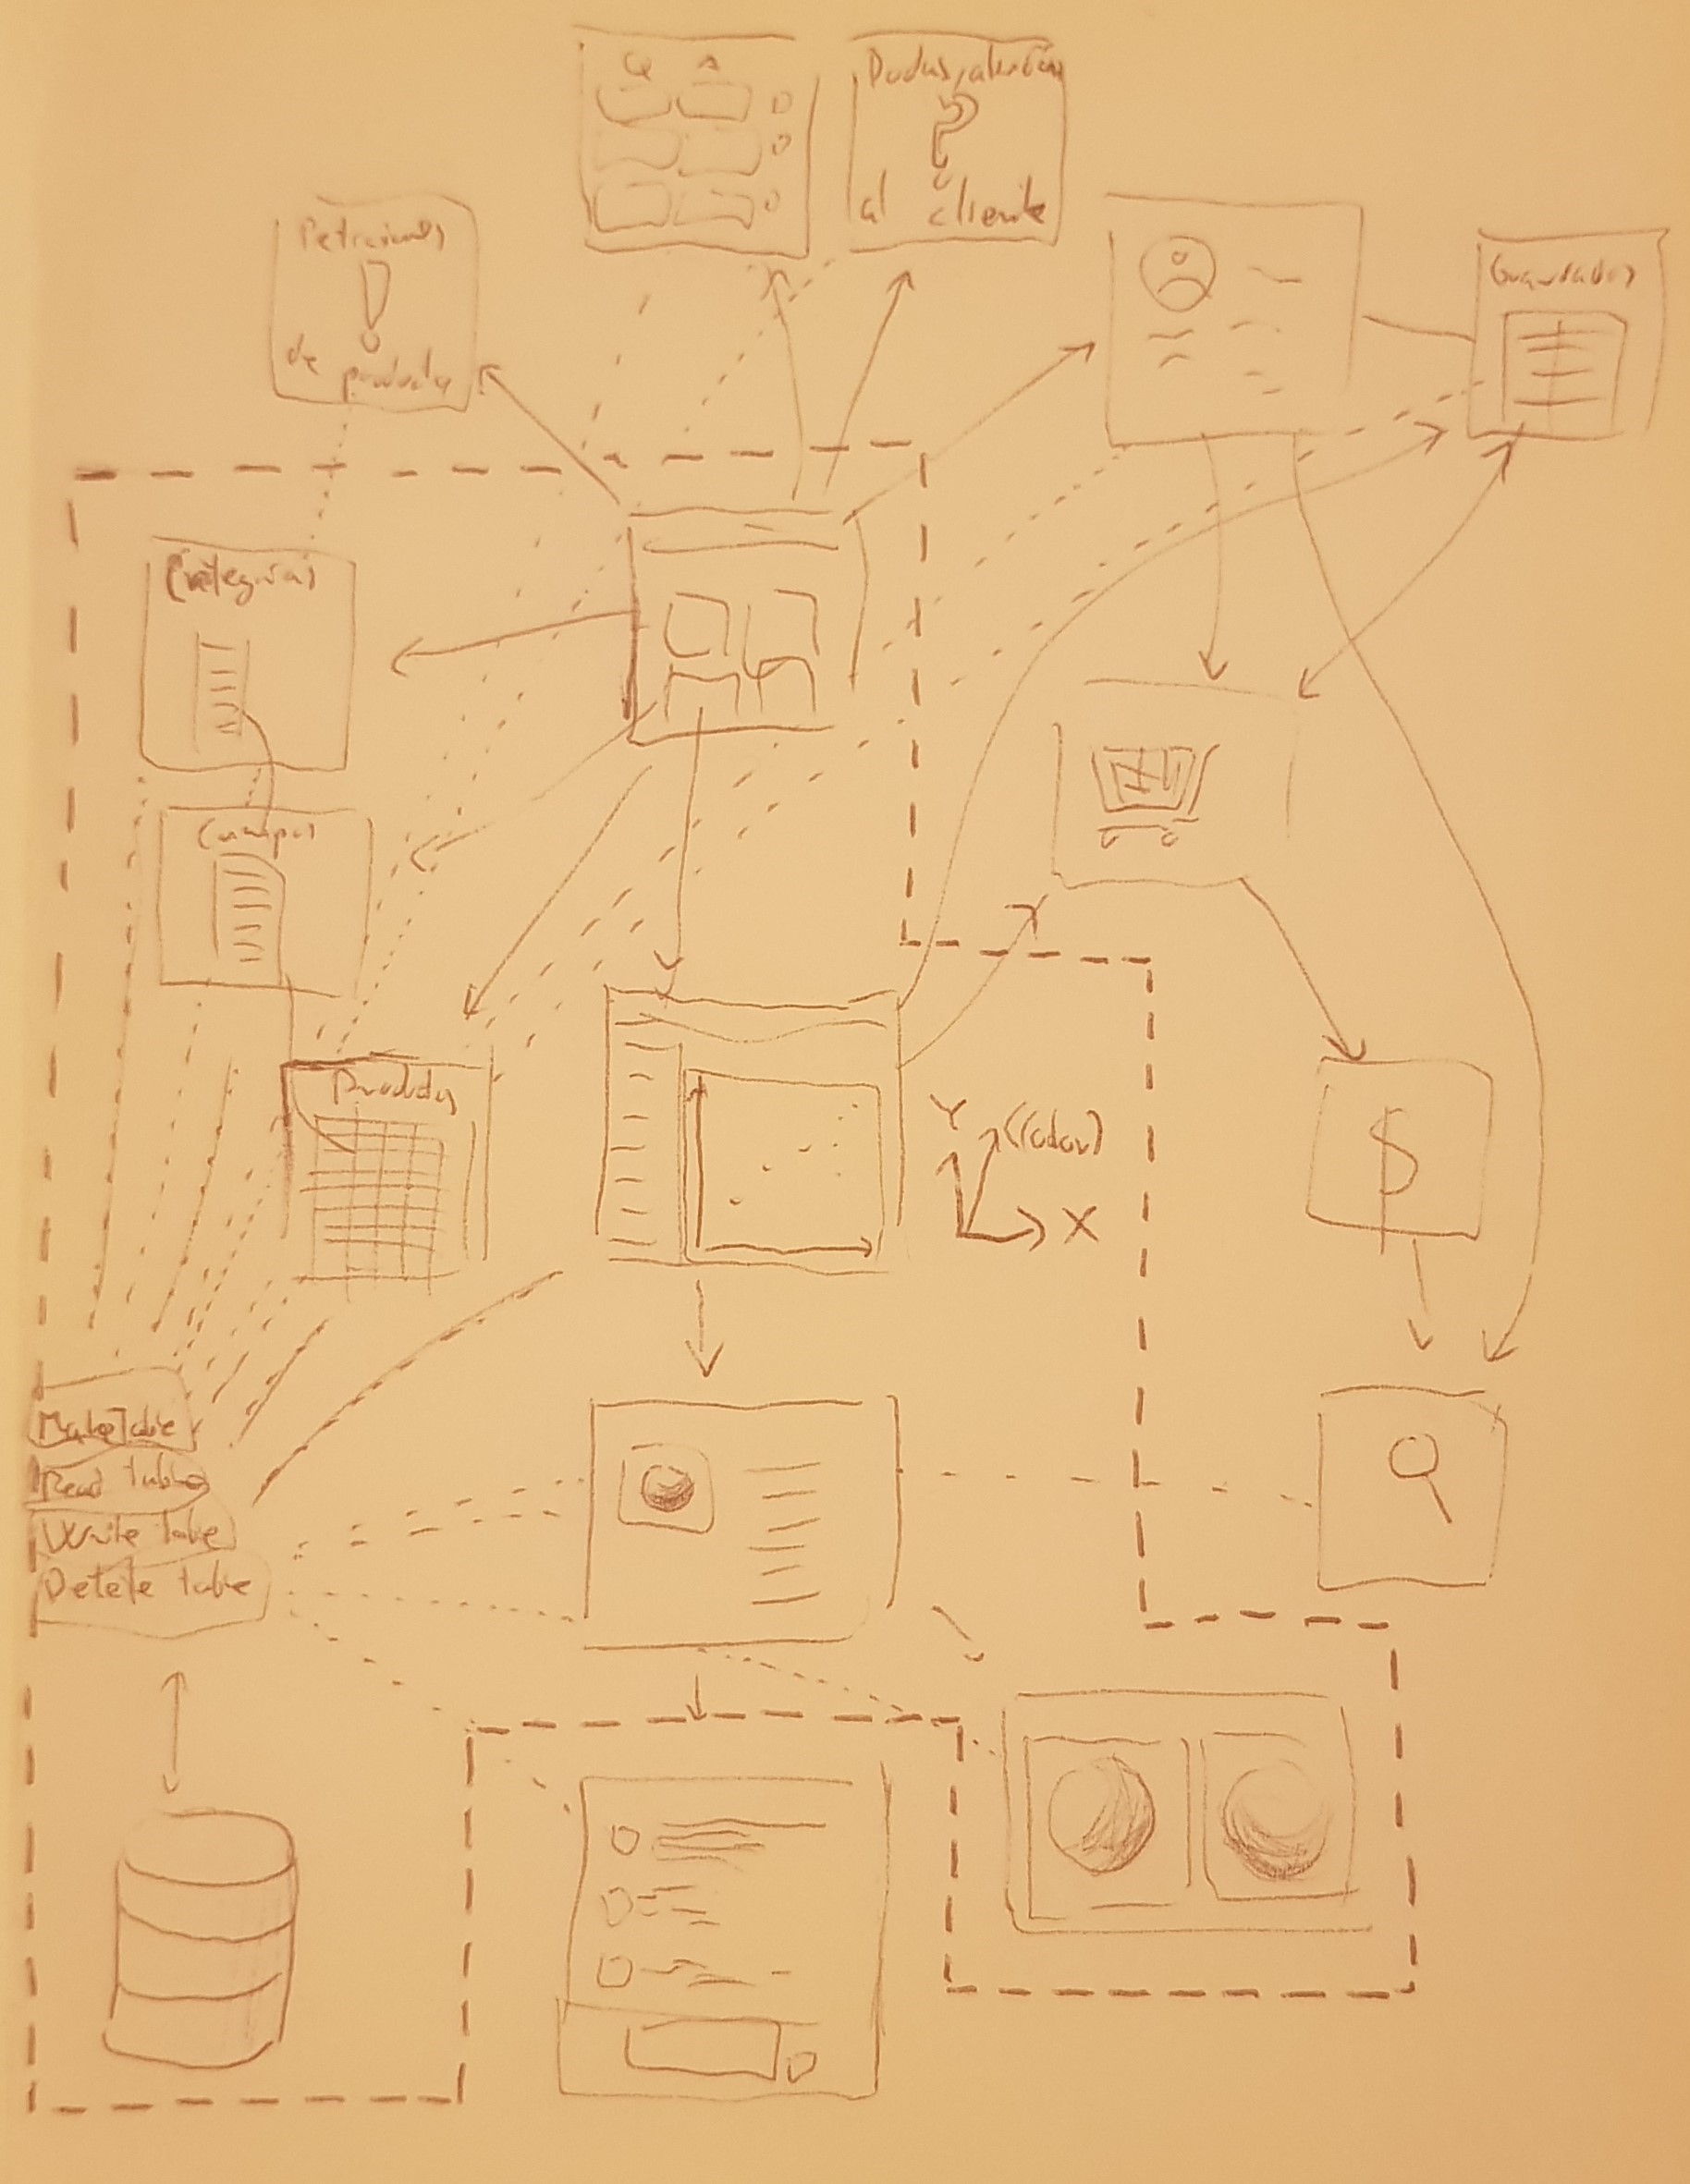 Q A
Dudas, atención
?
al cliente
Peticiones
!
de producto
Guardados
Categorías
Campos
Productos
Y
(Color)
X
$
Make Table
Read table
Write table
Delete table